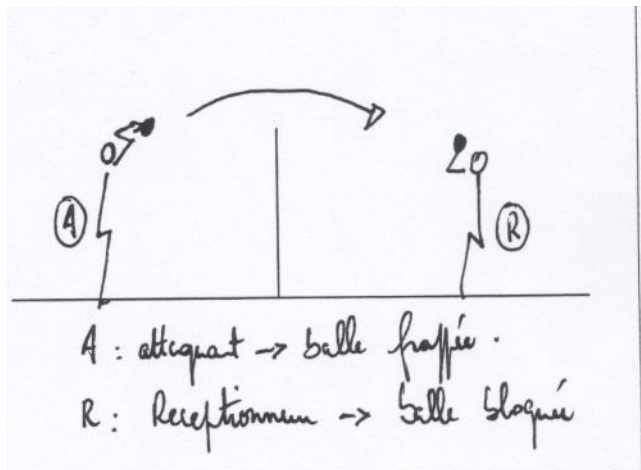 A R
A : attaquant -> balle frappée.
R : Receptionneur -> balle bloquée